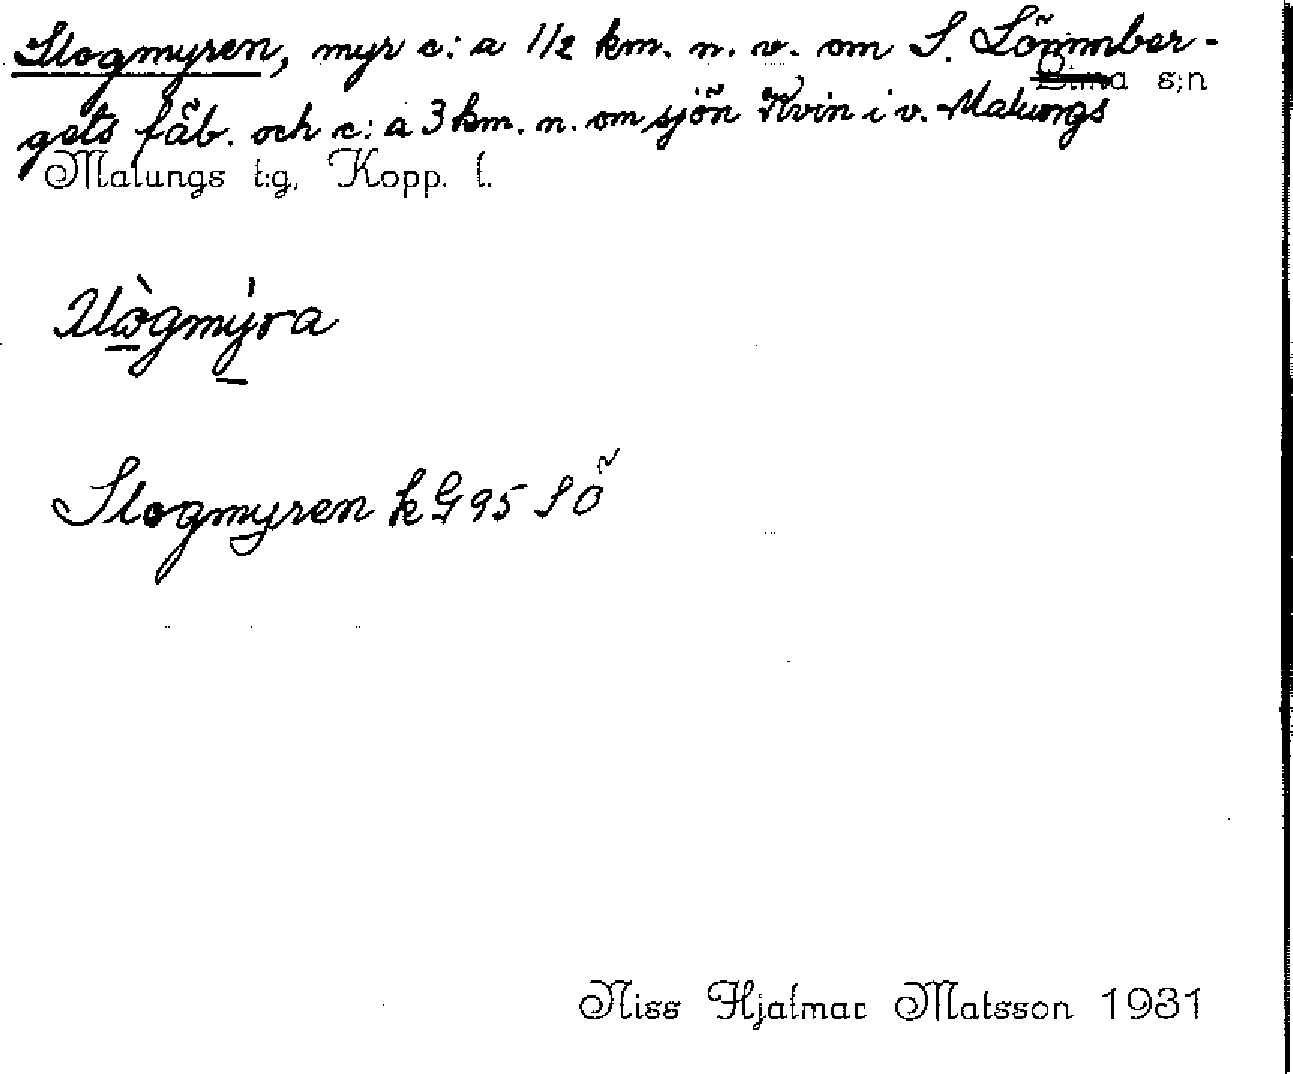 Slogmyren, myr c:a 1/2 km. n. v. om S. Lömmber-
Lima s:n
gets fäb. och c:a 3 km. n. om sjön Kvin i v. Malungs
Malungs t:g, Kopp. l.
Slogmyren k G 95 SÖ
Niss Hjalmar Matsson 1931